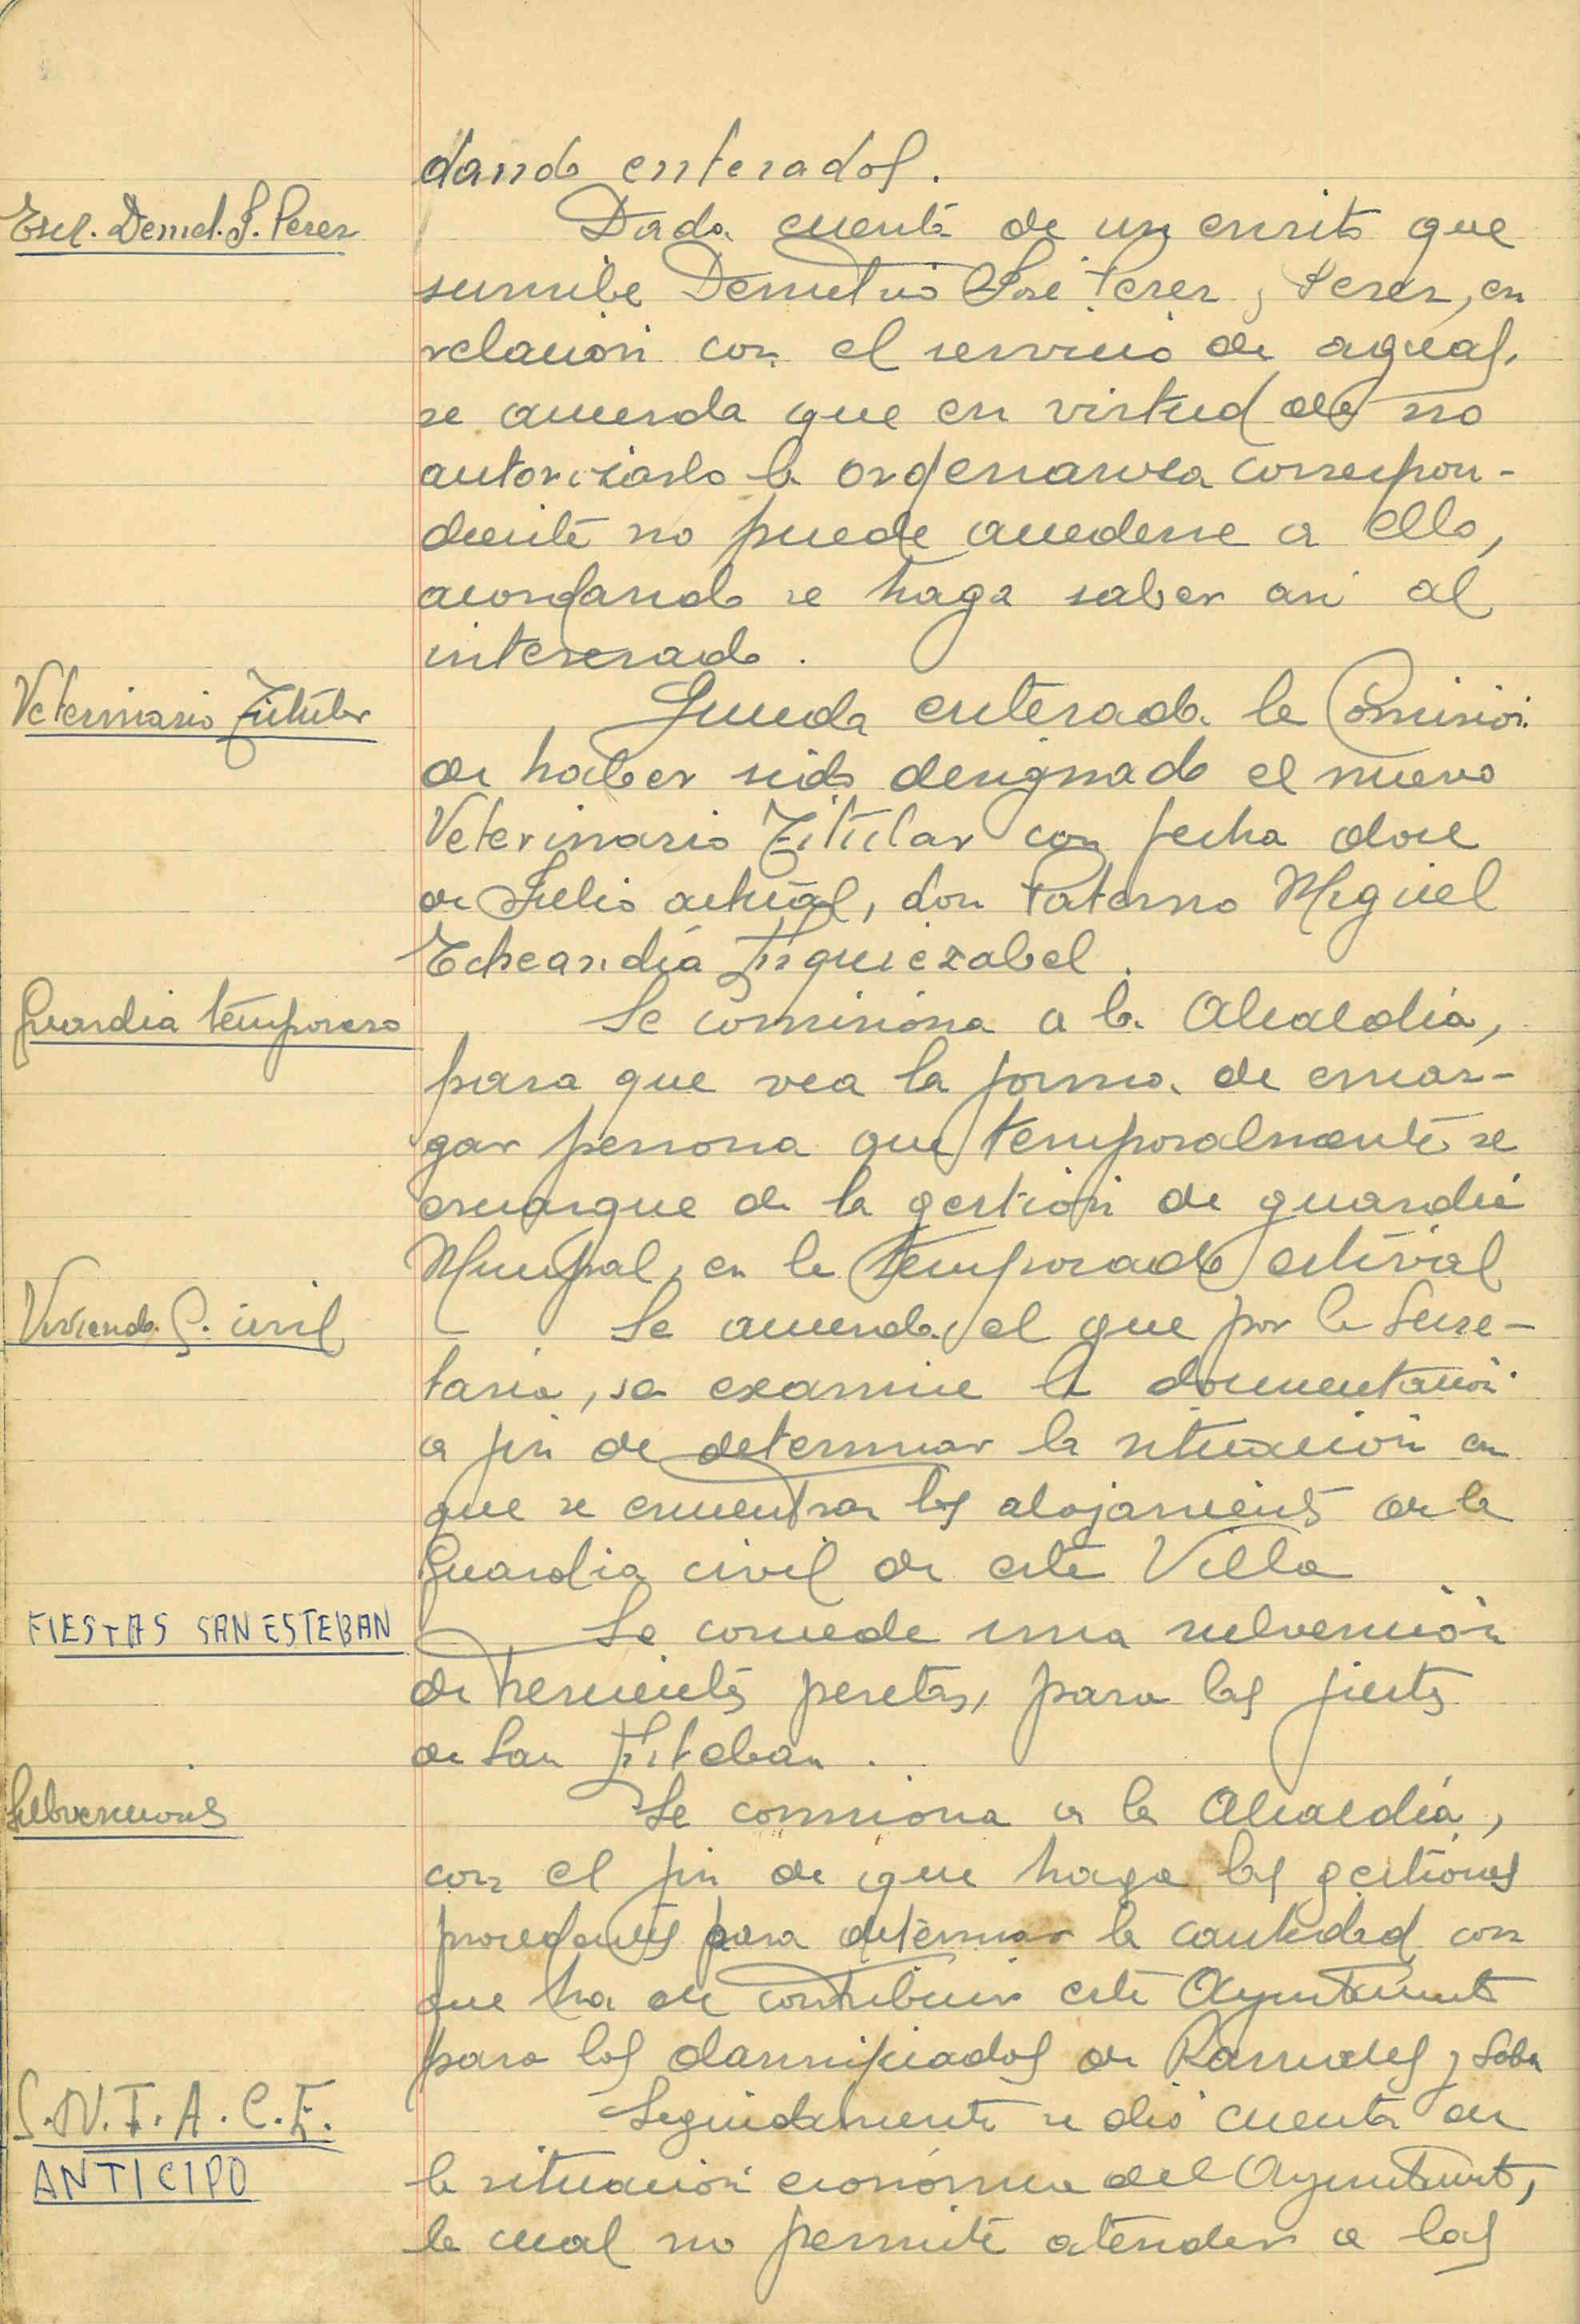 dando enterados.
Escr. Demet. J. Perez
Dada cuenta de un escrito que
suscribe Demetrio José Perez y Perez, en
relación con el servicio de aguas,
se acuerda que en virtud de no
autorizarlo la ordenanza correspon-
diente no puede accederse a ello,
acordando se haga saber asi al
interesado.
Veterinario Titular
Queda enterada la Comisión
de haber sido designado el nuevo
Veterinario Titular con fecha doce
de Julio actual, don Paterno Miguel
Echeandía Eiguiezabel.
Guardia temporero
Se comisiona a la Alcaldía,
para que vea la forma de encar-
gar persona que temporalmente se
encargue de la gestión de guardia
Municipal, en la temporada estival
Vivienda G. civil
Se acuerda el que por la Secre-
taria, se examine la documentación
a fin de determinar la situación en
que se encuentran los alojamientos de la
Guardia civil de esta Villa
FIESTAS SAN ESTEBAN
Se concede una subvención
de trescientas pesetas, para las fiestas
de San Esteban.
Subvenciones
Se comisiona a la Alcaldía,
con el fin de que haga las gestiones
procedentes para determinar la cantidad con
que ha de contribuir este Ayuntamiento
para los damnificados de Ramales y Soba
S.N.I.A.C.E.
ANTICIPO
Seguidamente se dió cuenta de
la situación económica del Ayuntamiento,
la cual no permite atender a las